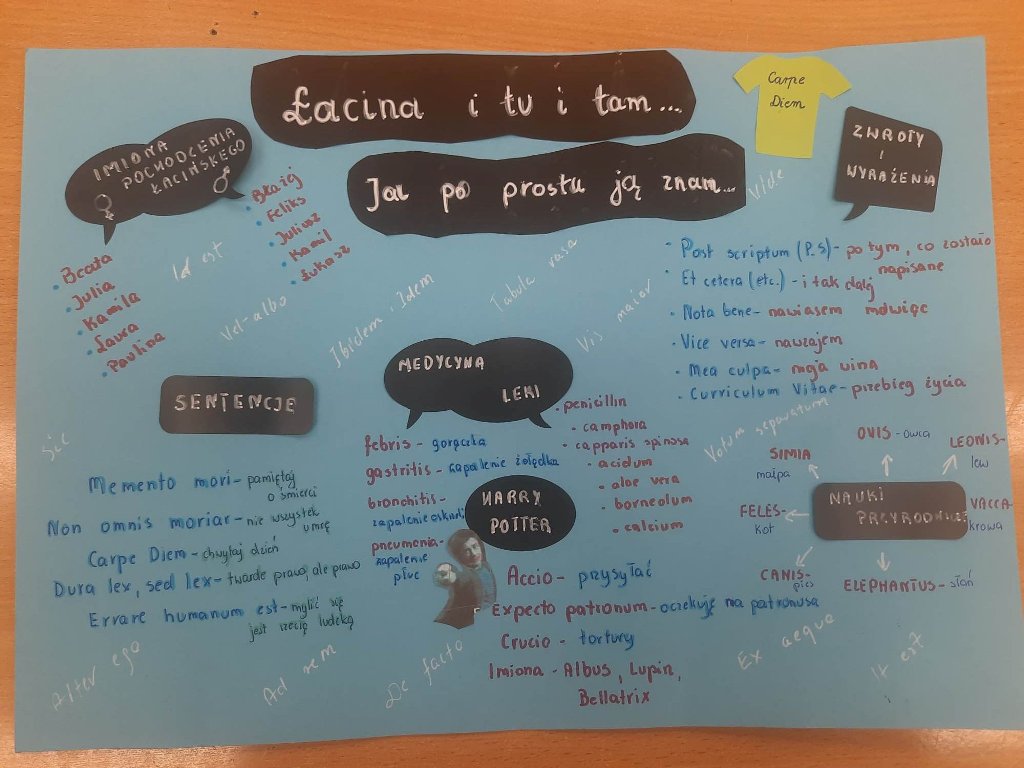 Łacina i tu i tam...
Jak po prostu ją znam...
Carpe
Diem
IMIONA
POCHODZENIA
ŁACIŃSKIEGO
• Beata
• Julia
• Kamila
• Laura
• Paulina
• Błażej
• Feliks
• Juliusz
• Kamil
• Łukasz
Id est
Vel-albo
Ibidem i Idem
Tabula rasa
Vis maior
Vide
ZWROTY
I
WYRAŻENIA
• Post scriptum (P.S) - po tym, co zostało
napisane
• Et cetera (etc.) - i tak dalej
• Nota bene - nawiasem mówiąc
• Vice versa - nawzajem
• Mea culpa - moja wina
• Curriculum Vitae - przebieg życia
SENTENCJE
Sic
Memento mori - pamiętaj
o śmierci
Non omnis moriar - nie wszystek
umrę
Carpe Diem - chwytaj dzień
Dura lex, sed lex - twarde prawo, ale prawo
Errare humanum est - mylić się
jest rzeczą ludzką
MEDYCYNA
LEKI
febris - gorączka
gastritis - zapalenie żołądka
bronchitis -
zapalenie oskrzeli
pneumonia -
zapalenie
płuc
• penicillin
• camphora
• capparis spinosa
• acidum
• aloe vera
• borneolum
• calcium
HARRY
POTTER
Accio - przysyłać
Expecto patronum - oczekuję na patronusa
Crucio - tortury
Imiona - Albus, Lupin,
Bellatrix
Votum separatum
NAUKI
PRZYRODNICZE
SIMIA
małpa
OVIS - owca
LEONIS -
lew
FELES -
kot
VACCA -
krowa
CANIS -
pies
ELEPHANTUS - słoń
Alter ego
Ad rem
De facto
Ex aequo
It est